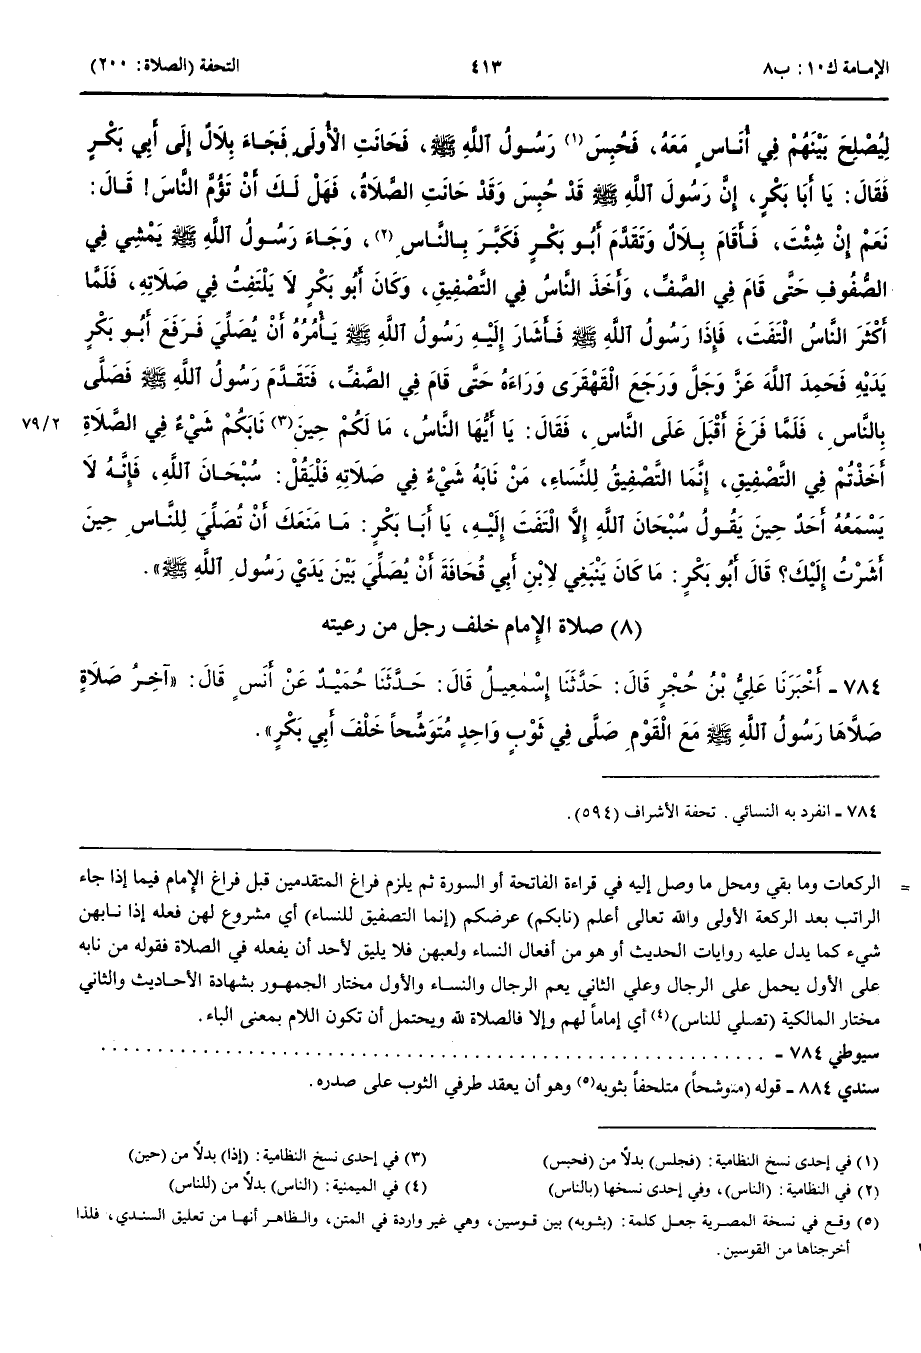 الإمامة ك١٠: ب٨
٤١٣
التحفة (الصلاة: ٢٠٠)
لِيُصْلِحَ بَيْنَهُمْ فِي أُنَاسٍ مَعَهُ، فَحُبِسَ(١) رَسُولُ اللَّهِ ﷺ، فَحَانَتِ الْأُولَى فَجَاءَ بِلَالٌ إِلَى أَبِي بَكْرٍ
فَقَالَ: يَا أَبَا بَكْرٍ، إِنَّ رَسُولَ اللَّهِ ﷺ قَدْ حُبِسَ وَقَدْ حَانَتِ الصَّلَاةُ، فَهَلْ لَكَ أَنْ تَؤُمَّ النَّاسَ! قَالَ:
نَعَمْ إِنْ شِئْتَ، فَأَقَامَ بِلَالٌ وَتَقَدَّمَ أَبُو بَكْرٍ فَكَبَّرَ بِالنَّاسِ(٢)، وَجَاءَ رَسُولُ اللَّهِ ﷺ يَمْشِي فِي
الصُّفُوفِ حَتَّى قَامَ فِي الصَّفِّ، وَأَخَذَ النَّاسُ فِي التَّصْفِيقِ، وَكَانَ أَبُو بَكْرٍ لَا يَلْتَفِتُ فِي صَلَاتِهِ، فَلَمَّا
أَكْثَرَ النَّاسُ الْتَفَتَ، فَإِذَا رَسُولُ اللَّهِ ﷺ فَأَشَارَ إِلَيْهِ رَسُولُ اللَّهِ ﷺ يَأْمُرُهُ أَنْ يُصَلِّيَ فَرَفَعَ أَبُو بَكْرٍ
يَدَيْهِ فَحَمِدَ اللَّهَ عَزَّ وَجَلَّ وَرَجَعَ الْقَهْقَرَى وَرَاءَهُ حَتَّى قَامَ فِي الصَّفِّ، فَتَقَدَّمَ رَسُولُ اللَّهِ ﷺ فَصَلَّى
بِالنَّاسِ، فَلَمَّا فَرَغَ أَقْبَلَ عَلَى النَّاسِ، فَقَالَ: يَا أَيُّهَا النَّاسُ، مَا لَكُمْ حِينَ(٣) نَابَكُمْ شَيْءٌ فِي الصَّلَاةِ
٧٩/٢
أَخَذْتُمْ فِي التَّصْفِيقِ، إِنَّمَا التَّصْفِيقُ لِلنِّسَاءِ، مَنْ نَابَهُ شَيْءٌ فِي صَلَاتِهِ فَلْيَقُلْ: سُبْحَانَ اللَّهِ، فَإِنَّهُ لَا
يَسْمَعُهُ أَحَدٌ حِينَ يَقُولُ سُبْحَانَ اللَّهِ إِلَّا الْتَفَتَ إِلَيْهِ، يَا أَبَا بَكْرٍ: مَا مَنَعَكَ أَنْ تُصَلِّيَ لِلنَّاسِ حِينَ
أَشَرْتُ إِلَيْكَ؟ قَالَ أَبُو بَكْرٍ: مَا كَانَ يَنْبَغِي لِابْنِ أَبِي قُحَافَةَ أَنْ يُصَلِّيَ بَيْنَ يَدَيْ رَسُولِ اللَّهِ ﷺ».
(٨) صلاة الإمام خلف رجل من رعيته
٧٨٤ - أَخْبَرَنَا عَلِيُّ بْنُ حُجْرٍ قَالَ: حَدَّثَنَا إِسْمَعِيلُ قَالَ: حَدَّثَنَا حُمَيْدٌ عَنْ أَنَسٍ قَالَ: «آخِرُ صَلَاةٍ
صَلَّاهَا رَسُولُ اللَّهِ ﷺ مَعَ الْقَوْمِ صَلَّى فِي ثَوْبٍ وَاحِدٍ مُتَوَشِّحاً خَلْفَ أَبِي بَكْرٍ».
٧٨٤ - انفرد به النسائي. تحفة الأشراف (٥٩٤).
= الركعات وما بقي ومحل ما وصل إليه في قراءة الفاتحة أو السورة ثم يلزم فراغ المتقدمين قبل فراغ الإمام فيما إذا جاء
الراتب بعد الركعة الأولى والله تعالى أعلم (نابكم) عرضكم (إنما التصفيق للنساء) أي مشروع لهن فعله إذا نابهن
شيء كما يدل عليه روايات الحديث أو هو من أفعال النساء ولعبهن فلا يليق لأحد أن يفعله في الصلاة فقوله من نابه
على الأول يحمل على الرجال وعلي الثاني يعم الرجال والنساء والأول مختار الجمهور بشهادة الأحاديث والثاني
مختار المالكية (تصلي للناس)(٤) أي إماماً لهم وإلا فالصلاة لله ويحتمل أن تكون اللام بمعنى الباء.
سيوطي ٧٨٤ - . . . . . . . . . . . . . . . . . . . . . . . . . . . . . .
سندي ٨٨٤ - قوله (متوشحاً) متلحفاً بثوبه(٥) وهو أن يعقد طرفي الثوب على صدره.
(١) في إحدى نسخ النظامية: (فجلس) بدلاً من (فحبس)
(٣) في إحدى نسخ النظامية: (إذا) بدلاً من (حين)
(٢) في النظامية: (الناس)، وفي إحدى نسخها (بالناس)
(٤) في الميمنية: (الناس) بدلاً من (للناس)
(٥) وقع في نسخة المصرية جعل كلمة: (بثوبه) بين قوسين، وهي غير واردة في المتن، والظاهر أنها من تعليق السندي، فلذا
أخرجناها من القوسين.